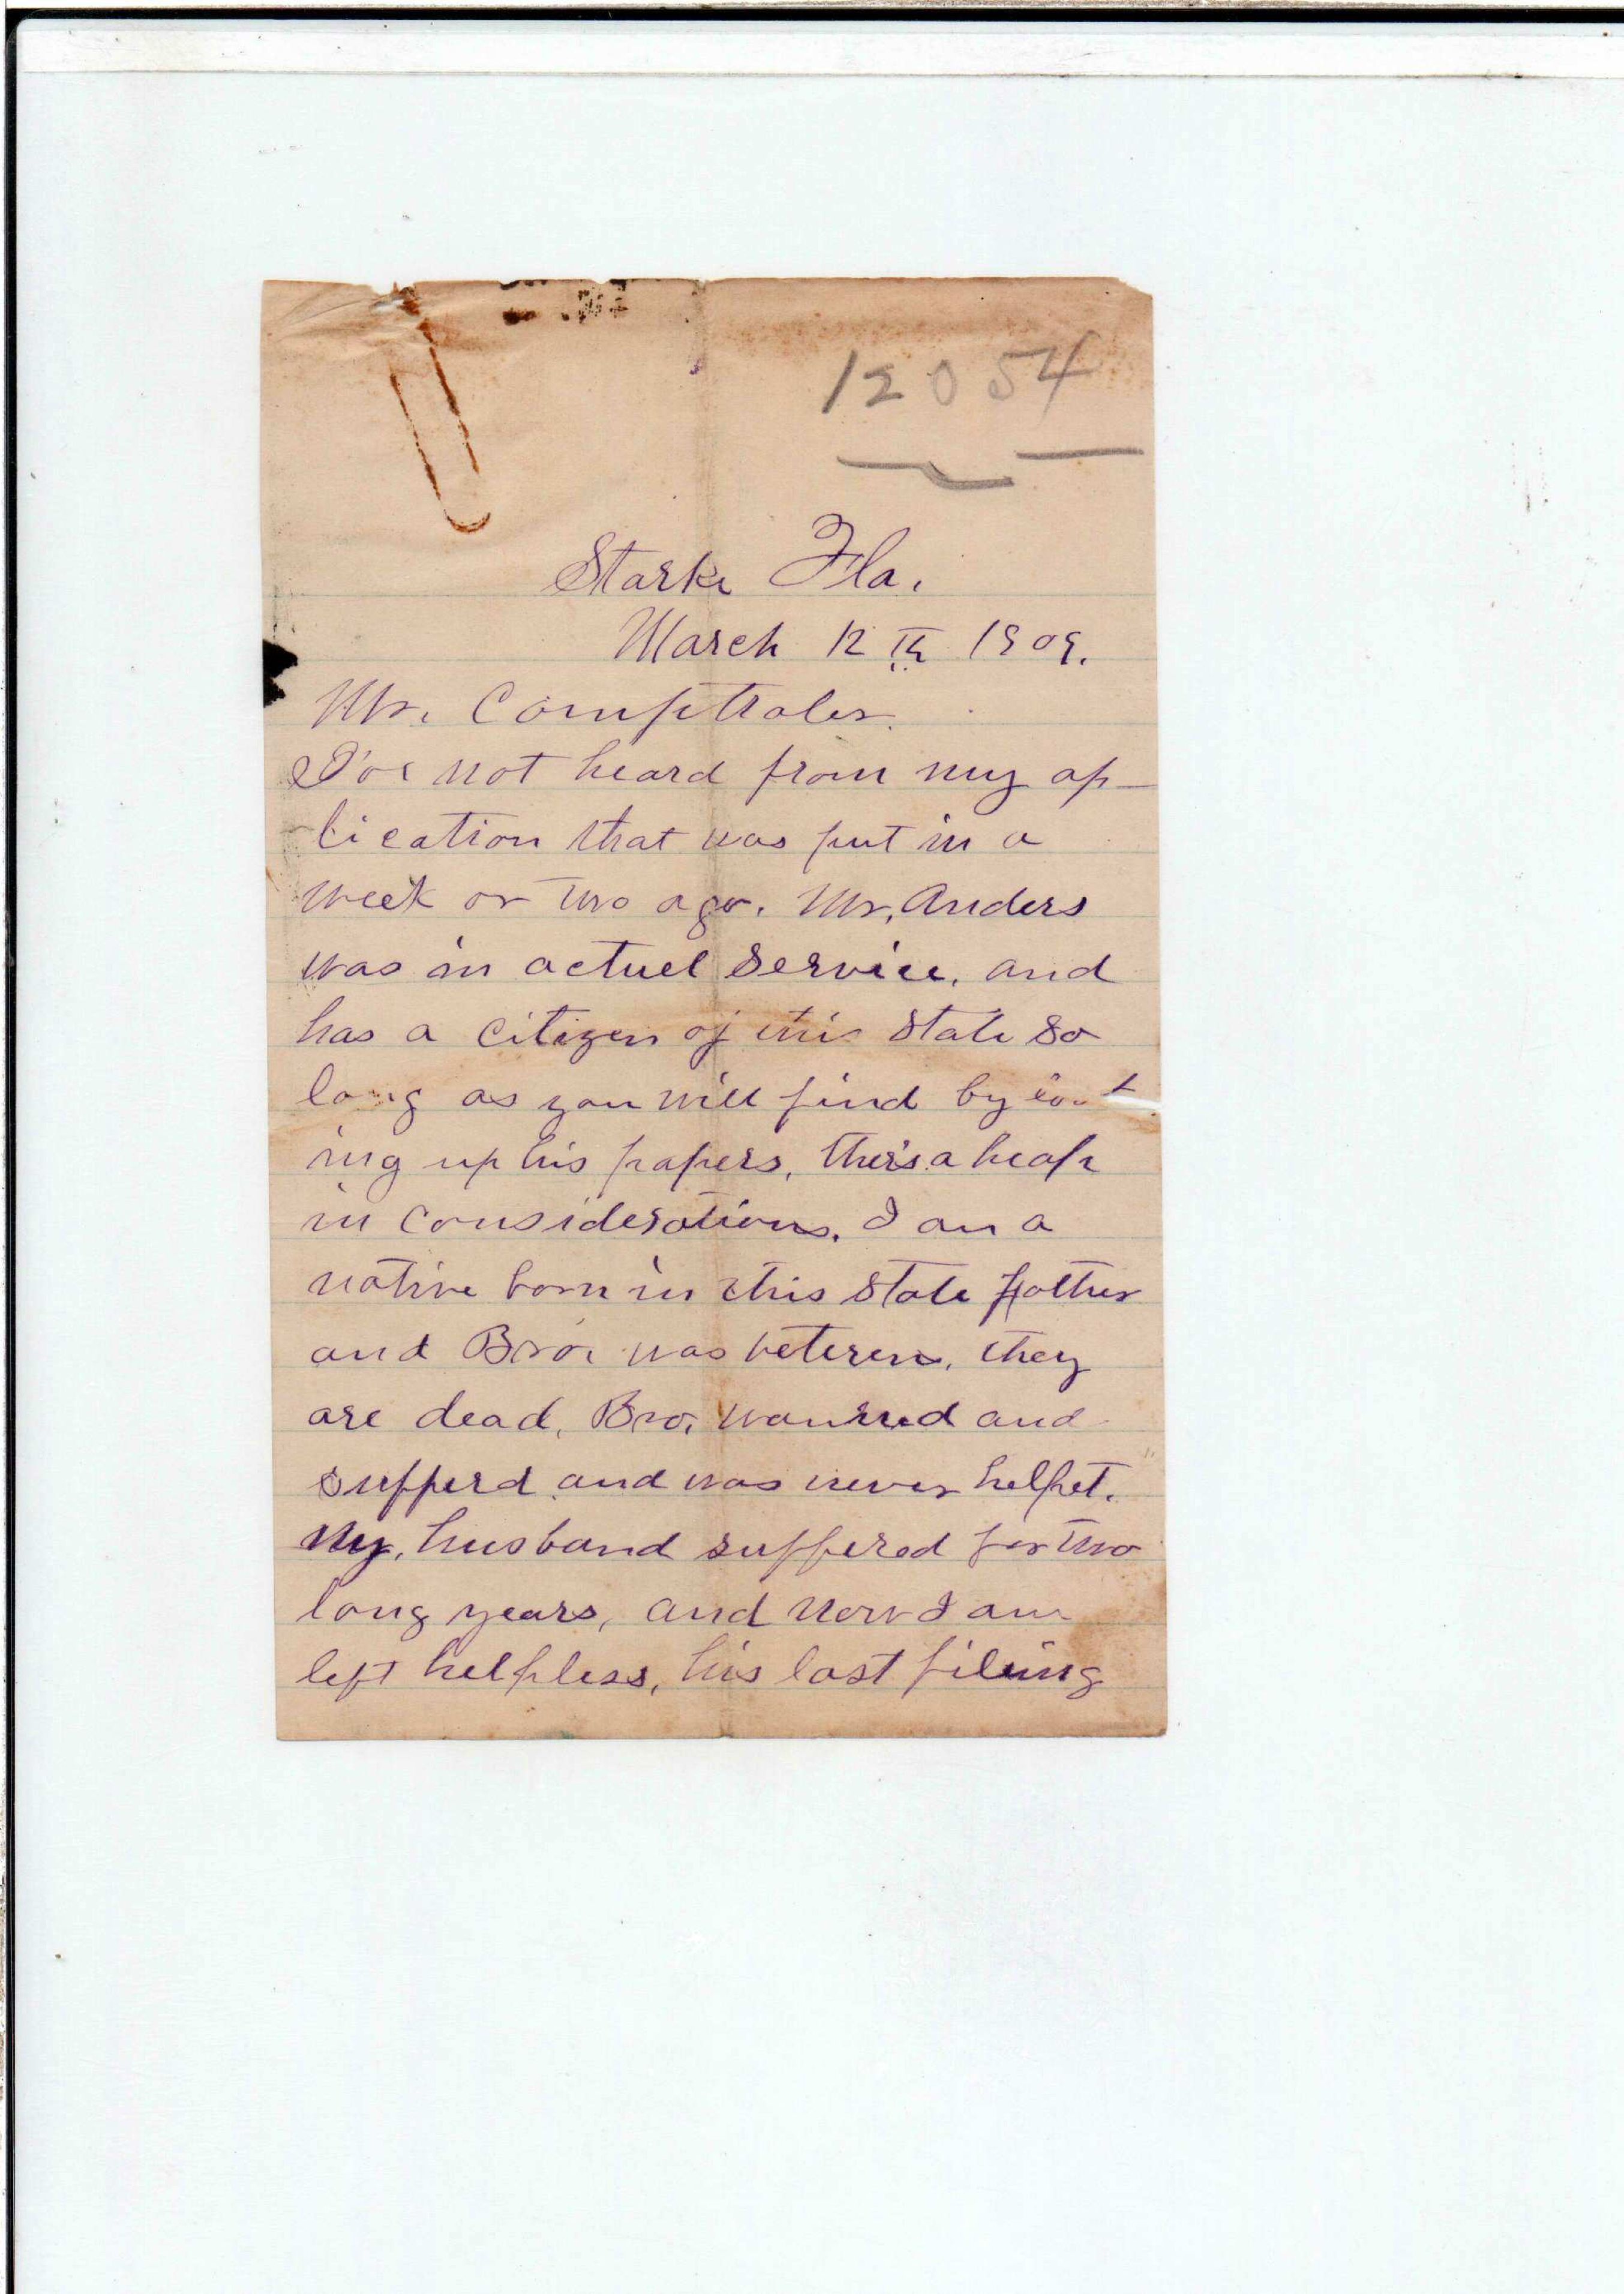 12054
Starke Fla.
March 12th 1909.
Mr. Comptroler.
I've not heard from my ap-
lication that was put in a
week or two ago. Mr. Anders
was in actuel service, and
has a citizen of this State so
long as you will find by
ing up his papers, ther's a heap
in considerations. I am a
native born in this State Father
and Bro. was veteren, they
are dead, Bro. and
sufferd and was never helpet.
My, husband suffered for two
long years, and now I am
left helpless, his last fileing